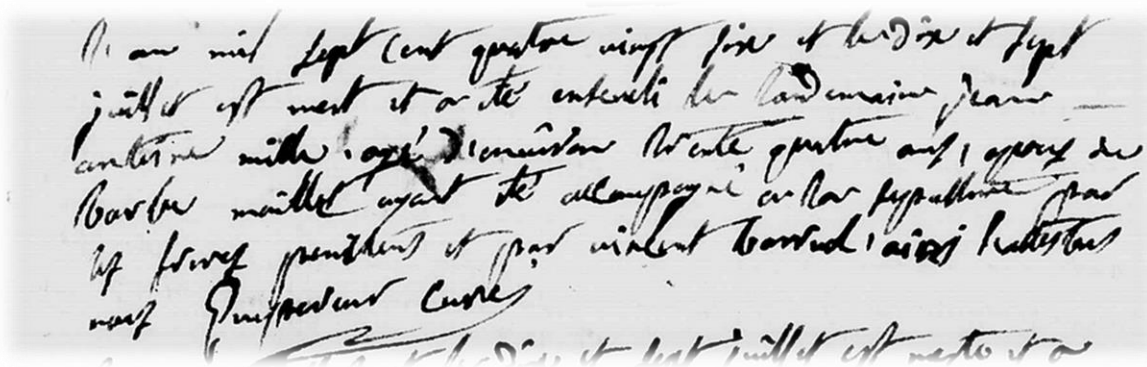 L'an mil sept cent quatre vingt six et le dix et sept
juillet est mort et a été enseveli le landemain jean
antoine mille agé d'environ trente quatre ans, epoux de
barbe maillet ayant été accompagné a la sepulture par
les freres penitens et par vincent barrud, ainsi l'attestons
nous curé
et le dix et sept juillet est morte et a